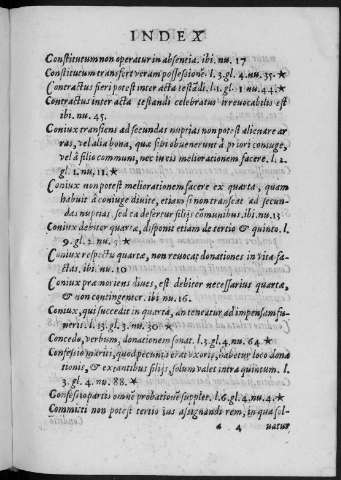 INDEX
Constitutum non operatur in absentia. ibi. nu. 17
Constitutum transfert veram possessionē. l. 3. gl. 4. nu. 35. ★
Contractus fieri potest inter acta testādi. l. 1. gl. 1 nu. 44. ★
Contractus inter acta testandi celebratus irreuocabilis est
ibi. nu. 45.
Coniux transiens ad secundas nuptias non potest alienare ar
ras, vel alia bona, quæ sibi obuenerunt à priori coniuge,
vel à filio communi, nec in eis meliorationem facere. l. 2.
gl. 1. nu. 11. ★
Coniux non potest meliorationem facere ex quarta, quam
habuit à coniuge diuite, etiam si non transeat ad secun-
das nuptias, sed ea defertur filijs communibus. ibi. nu. 13
Coniux debitor quartæ, disponit etiam de tertio & quinto. l.
9. gl. 2. nu. ★
Coniux respectu quartæ, non reuocat donationes in vita fa-
ctas. ibi. nu. 10
Coniux præmoriens diues, est debitor necessarius quartæ,
& non contingenter. ibi nu. 16.
Coniux, qui succedit in quarta, an teneatur ad impensam fu-
neris. l. 13. gl. 3. nu. 30. ★
Concedo, verbum, donationem sonat. l. 3. gl. 4. nu. 64. ★
Confessio mariti, quod pecunia erat vxoris, habetur loco dona
tionis, & extantibus filijs, solum valet intra quintum. l.
3. gl. 4. nu. 88. ★
Confessio partis omnē probationē supplet. l. 6. gl. 4. nu. 4. ★
Committi non potest tertio ius assignandi rem, in qua sol-
a 4 uatur